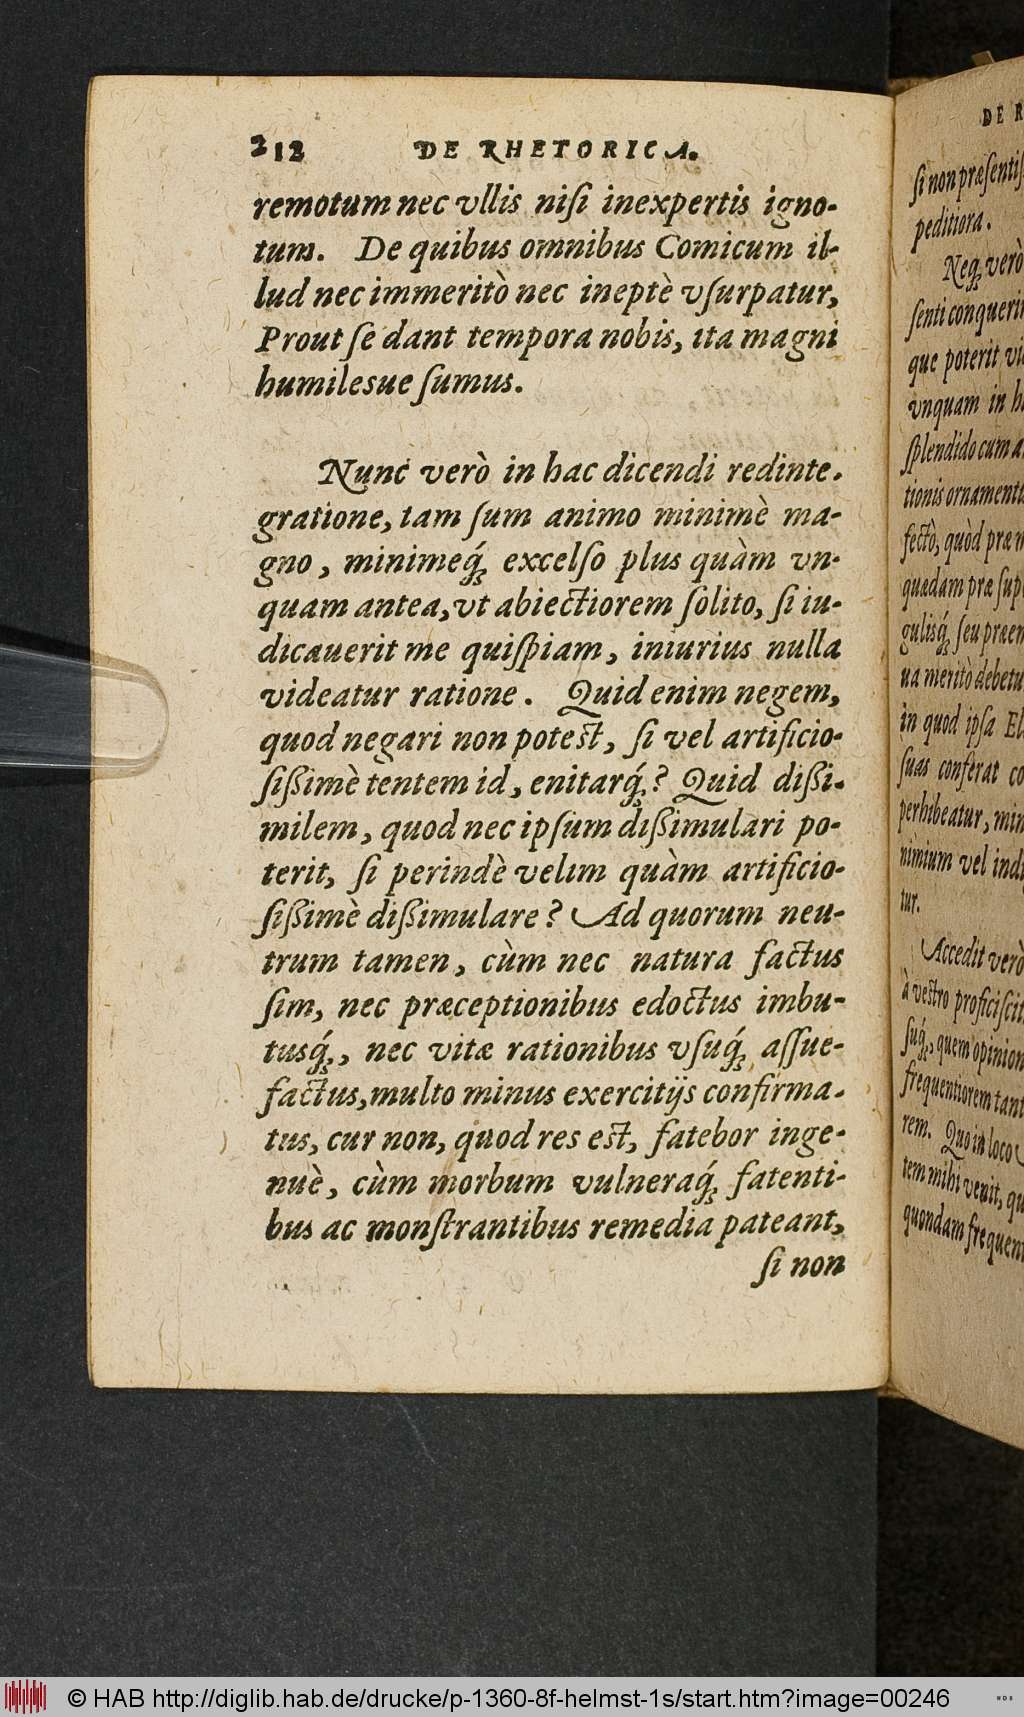 212 DE RHETORICA.
remotum nec vllis nisi inexpertis igno-
tum. De quibus omnibus Comicum il-
lud nec immeritò nec ineptè vsurpatur,
Prout se dant tempora nobis, ita magni
humilesue sumus.
Nunc verò in hac dicendi redinte-
gratione, tam sum animo minimè ma-
gno, minimeq́; excelso plus quàm vn-
quam antea, vt abiectiorem solito, si iu-
dicauerit me quispiam, iniurius nulla
videatur ratione. Quid enim negem,
quod negari non potest, si vel artificio-
sißimè tentem id, enitarq́;? Quid dißi-
milem, quod nec ipsum dißimulari po-
terit, si perindè velim quàm artificio-
sißimè dißimulare? Ad quorum neu-
trum tamen, cùm nec natura factus
sim, nec præceptionibus edoctus imbu-
tusq́;, nec vitæ rationibus vsuq́; assue-
factus, multo minus exercitijs confirma-
tus, cur non, quod res est, fatebor inge-
nuè, cùm morbum vulneraq́; fatenti-
bus ac monstrantibus remedia pateant,
si non
DE R
si non præsentis
peditiora.
Neq; verò
senti conquerir
que poterit vi
vnquam in h
splendido cum a
tionis ornament
fectò, quòd præ
quædam præ sup
gulisq́; seu præ
ua meritò debetu
in quod ipsa El
suas conferat co
perhibeatur, min
nimium vel ind
tur.
Accedit verò
à vestro proficiscit
suq́;, quem opinion
frequentiorem tant
rem. Quo in loco
tem mihi venit, qu
quondam frequent
© HAB http://diglib.hab.de/drucke/p-1360-8f-helmst-1s/start.htm?image=00246